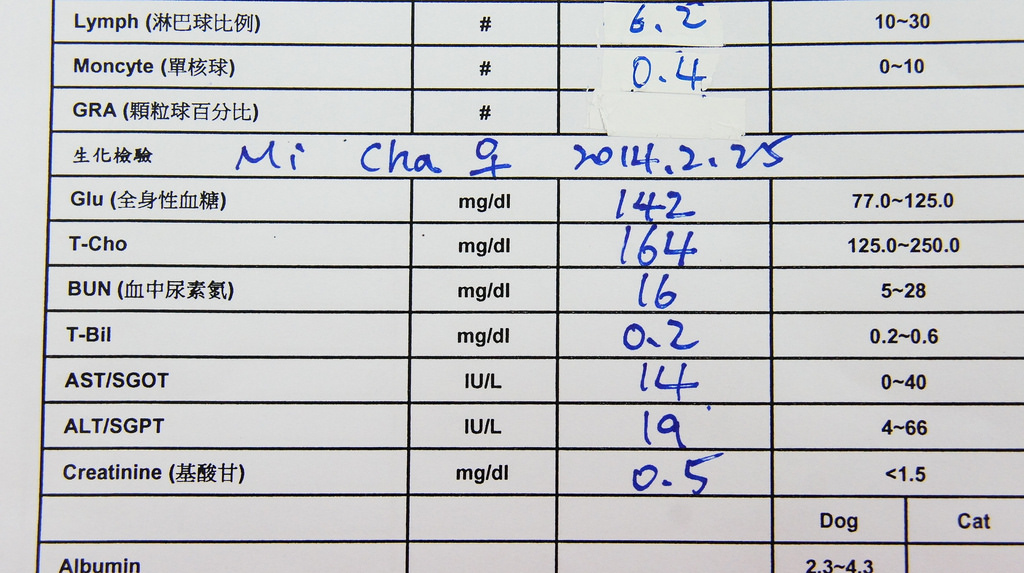 Lymph (淋巴球比例) # 6.2 10~30
Moncyte (單核球) # 0.4 0~10
GRA (顆粒球百分比) #
生化檢驗 Mi Cha ♀ 2014.2.25
Glu (全身性血糖) mg/dl 142 77.0~125.0
T-Cho mg/dl 164 125.0~250.0
BUN (血中尿素氮) mg/dl 16 5~28
T-Bil mg/dl 0.2 0.2~0.6
AST/SGOT IU/L 14 0~40
ALT/SGPT IU/L 19 4~66
Creatinine (基酸甘) mg/dl 0.5 <1.5
Dog Cat
Albumin 2.3~4.3